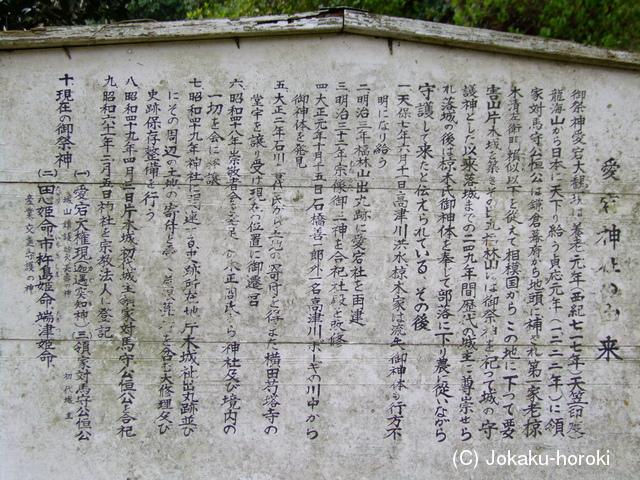 愛宕神社の由来
御祭神愛宕大権現は養老元年(西紀七一七年)天竺(印度)
龍海山から日本に天下り給う貞応元年(一二二二年)に領
家対馬守公恒公は鎌倉幕府から地頭に補され第一家老椋
木清左衛門頼似以下を従えて相模国からこの地に下って要
害山片木城を築きその出丸福林山には御祭神を祀って城の守
護神として以来落城までの二四九年間歴代の城主に尊崇せら
れ落城の後は椋木氏御神体を奉じて部落に下り農に従いながら
守護して来たと伝えられている その後
一 天保七年六月十二日高津川洪水椋木家は流失御神体も行方不
明になり給う
二 明治三年福林山出丸跡に愛宕社を再建
三 明治三十二年宗像御三神を合祀社殿を改修
四 大正元年十月十五日石橋善一郎外一名高津川ボーキの川中から
御神体を発見
五 大正二年石川 氏から土地の寄附を得また横田 塔寺の
堂宇を譲り受け現在の位置に御遷宮
六 昭和四十八年崇敬者会を 水正周氏 ら神社及び境内の
一切を会に 譲
七 昭和四十九年神社に 連 史跡 地片木城祉出丸跡並び
にその周辺の土地の寄附を 含む大修理及び
史跡保存整備を行う
八 昭和四十九年四月二日片木城初代城主領家対馬守公恒公を合祀
九 昭和六十年三月五日神社を宗教法人に登記
十 現在の御祭神
(一)愛宕大権現迦遇突知神 (三)領家対馬守公恒公
城山鎮護 火 の神 初代城主
(二)田心姫命市杵島姫命、端津姫命、
産業交通守護の神
(C) Jokaku-horoki